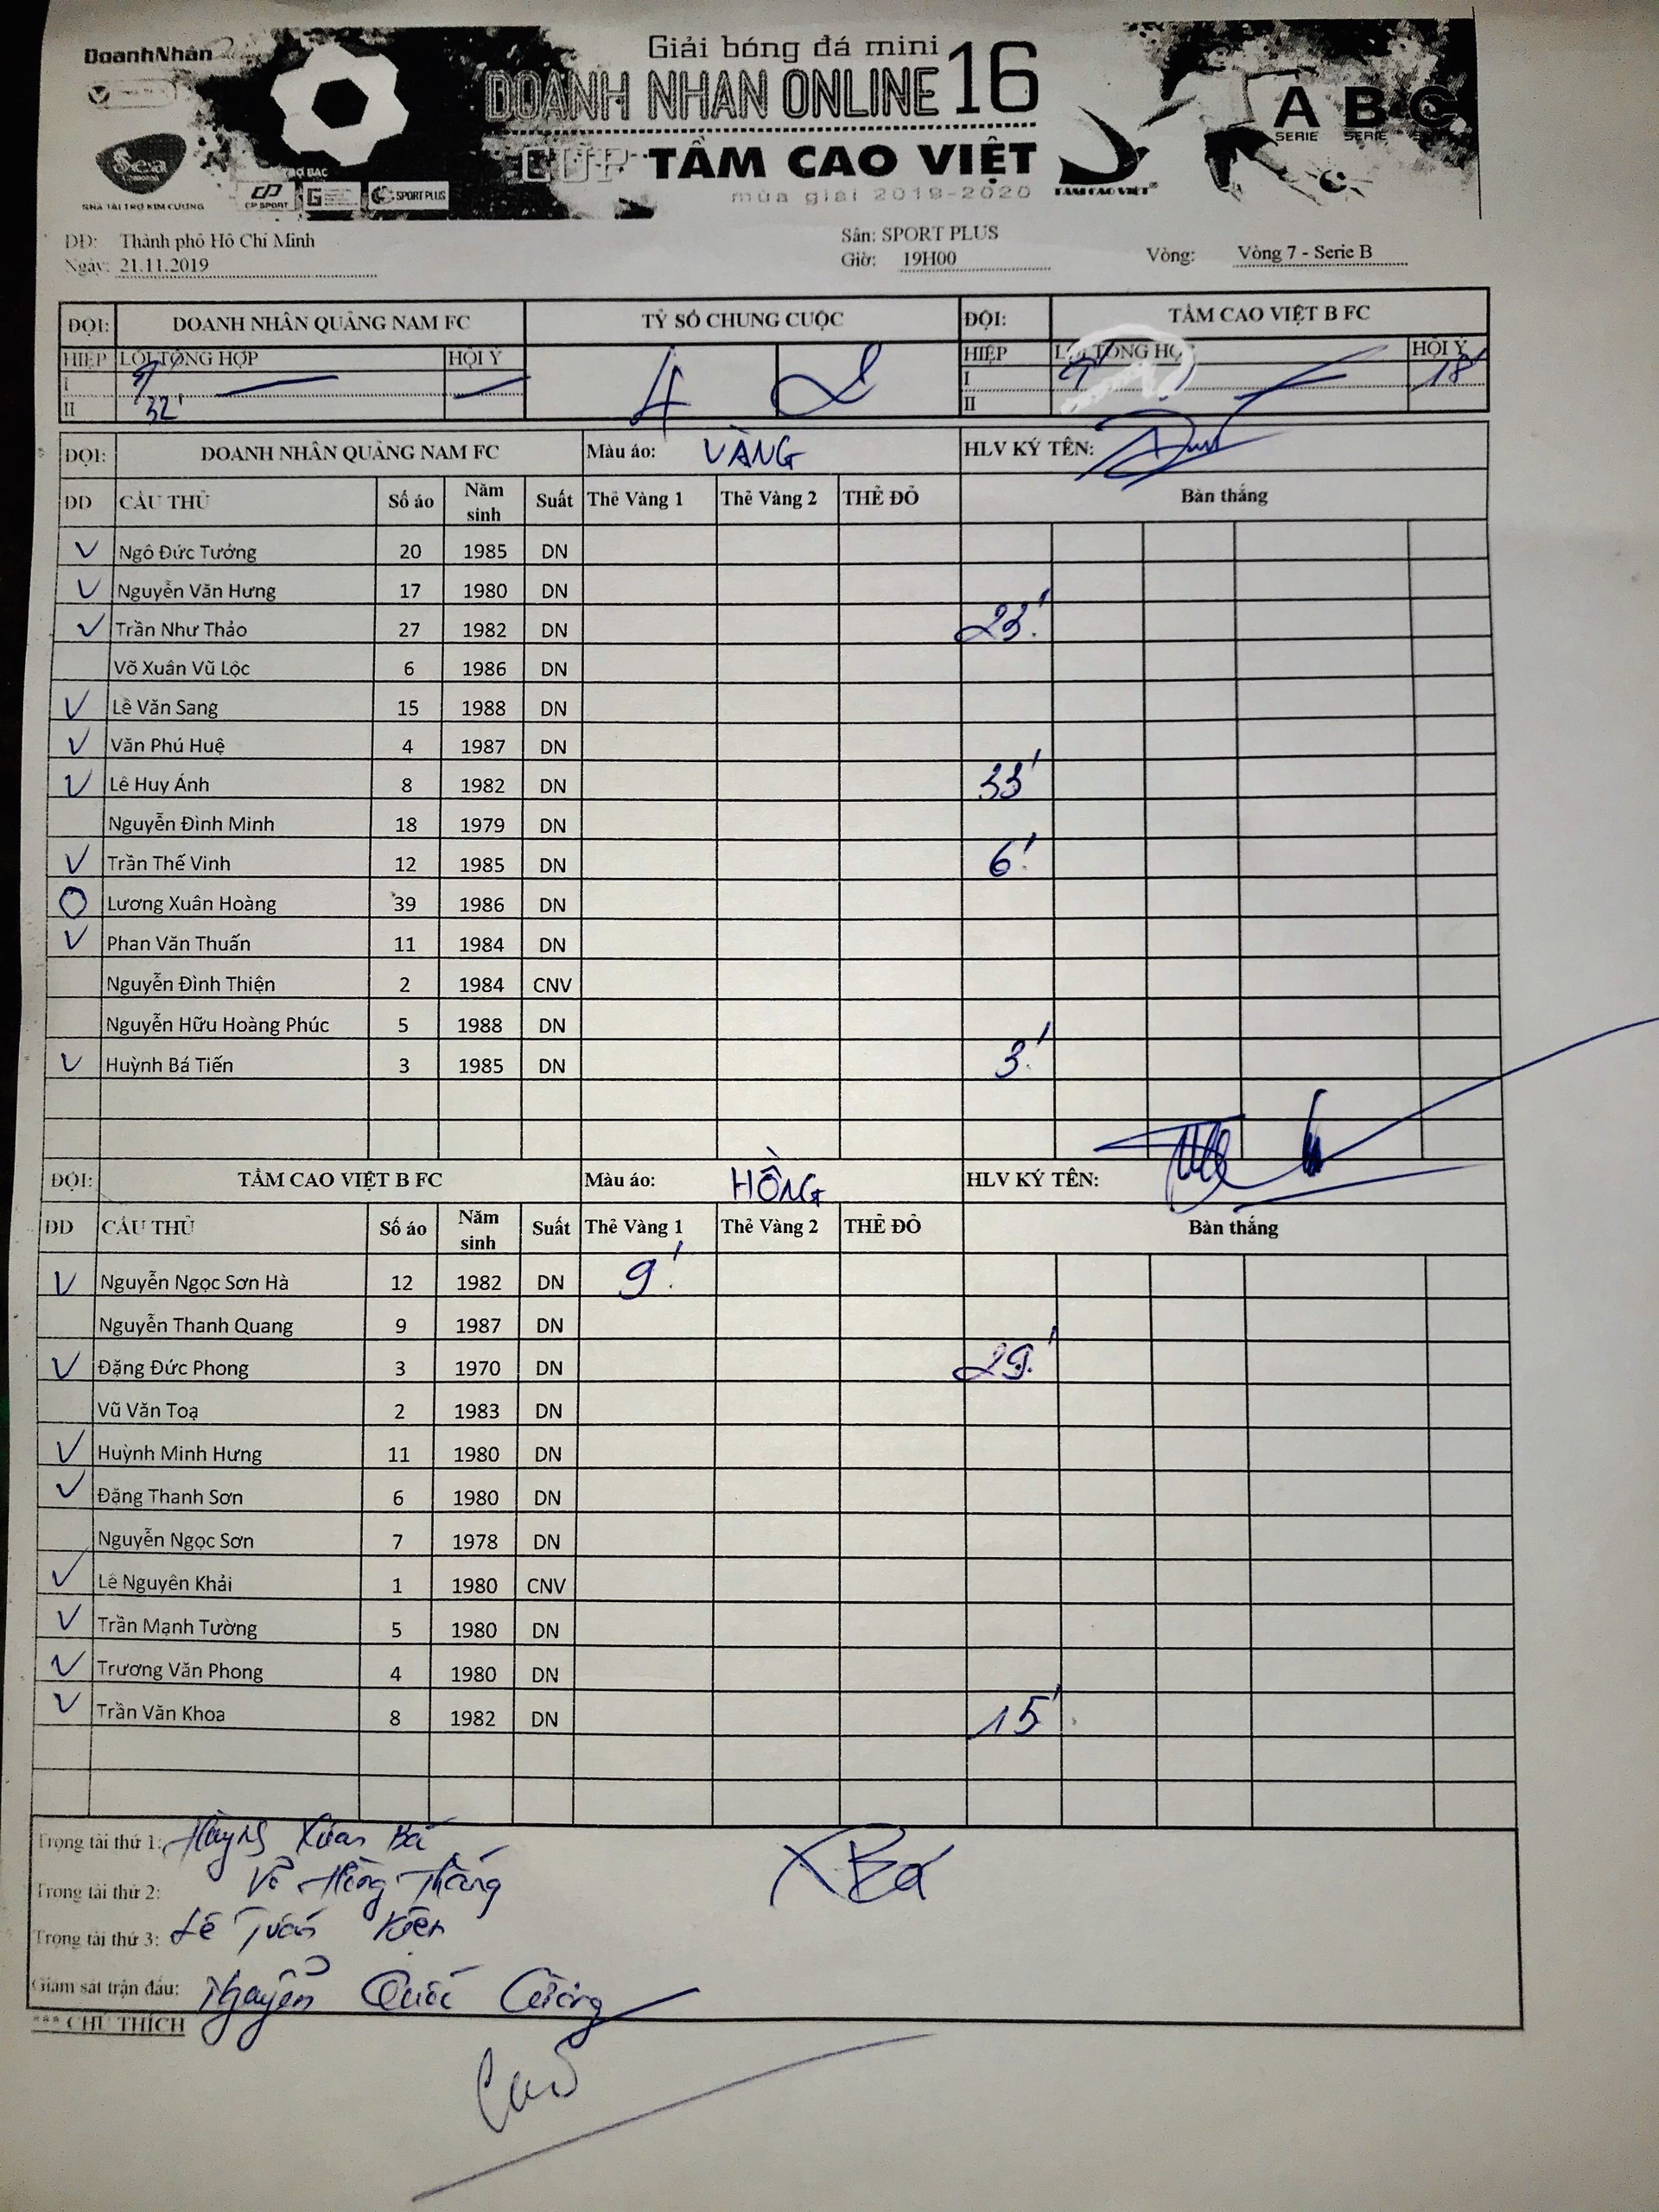 DoanhNhân
Giải bóng đá mini
DOANH NHAN ONLINE 16
CÚP TẦM CAO VIỆT
mùa giải 2019-2020
Sea
NHÀ TÀI TRỢ KIM CƯƠNG
CP SPORT SPORT PLUS
TAM CAO VIET
A B C
SERIE SERIE
DD: Thành phố Hồ Chí Minh
Sân: SPORT PLUS
Ngày: 21.11.2019
Giờ: 19H00
Vòng: Vòng 7 - Serie B
ĐỘI: DOANH NHÂN QUẢNG NAM FC TỶ SỐ CHUNG CUỘC ĐỘI: TẦM CAO VIỆT B FC
HIỆP LỖI TỔNG HỢP HỘI Ý 4 2 HIỆP LỖI TỔNG HỢP HỘI Ý
I 9' I 9' 18'
II 32' II
ĐỘI: DOANH NHÂN QUẢNG NAM FC Màu áo: VÀNG HLV KÝ TÊN:
DD CẦU THỦ Số áo Năm sinh Suất Thẻ Vàng 1 Thẻ Vàng 2 THẺ ĐỎ Bàn thắng
V Ngô Đức Tưởng 20 1985 DN
V Nguyễn Văn Hưng 17 1980 DN
V Trần Như Thảo 27 1982 DN 23'
Võ Xuân Vũ Lộc 6 1986 DN
V Lê Văn Sang 15 1988 DN
V Văn Phú Huệ 4 1987 DN
V Lê Huy Ánh 8 1982 DN 33'
Nguyễn Đình Minh 18 1979 DN
V Trần Thế Vinh 12 1985 DN 6'
O Lương Xuân Hoàng 39 1986 DN
V Phan Văn Thuấn 11 1984 DN
Nguyễn Đình Thiện 2 1984 CNV
Nguyễn Hữu Hoàng Phúc 5 1988 DN
V Huỳnh Bá Tiến 3 1985 DN 3'
ĐỘI: TẦM CAO VIỆT B FC Màu áo: HỒNG HLV KÝ TÊN:
DD CẦU THỦ Số áo Năm sinh Suất Thẻ Vàng 1 Thẻ Vàng 2 THẺ ĐỎ Bàn thắng
V Nguyễn Ngọc Sơn Hà 12 1982 DN 9'
Nguyễn Thanh Quang 9 1987 DN
V Đặng Đức Phong 3 1970 DN 29'
Vũ Văn Toạ 2 1983 DN
V Huỳnh Minh Hưng 11 1980 DN
V Đặng Thanh Sơn 6 1980 DN
Nguyễn Ngọc Sơn 7 1978 DN
V Lê Nguyên Khải 1 1980 CNV
V Trần Mạnh Tường 5 1980 DN
V Trương Văn Phong 4 1980 DN
V Trần Văn Khoa 8 1982 DN 15'
Trọng tài thứ 1: Huỳnh Xuân Bá
XBá
Trọng tài thứ 2: Võ Hồng Thắng
Trọng tài thứ 3: Lê Tuấn Kiên
Giám sát trận đấu: Nguyễn Quốc Cường
*** CHÚ THÍCH